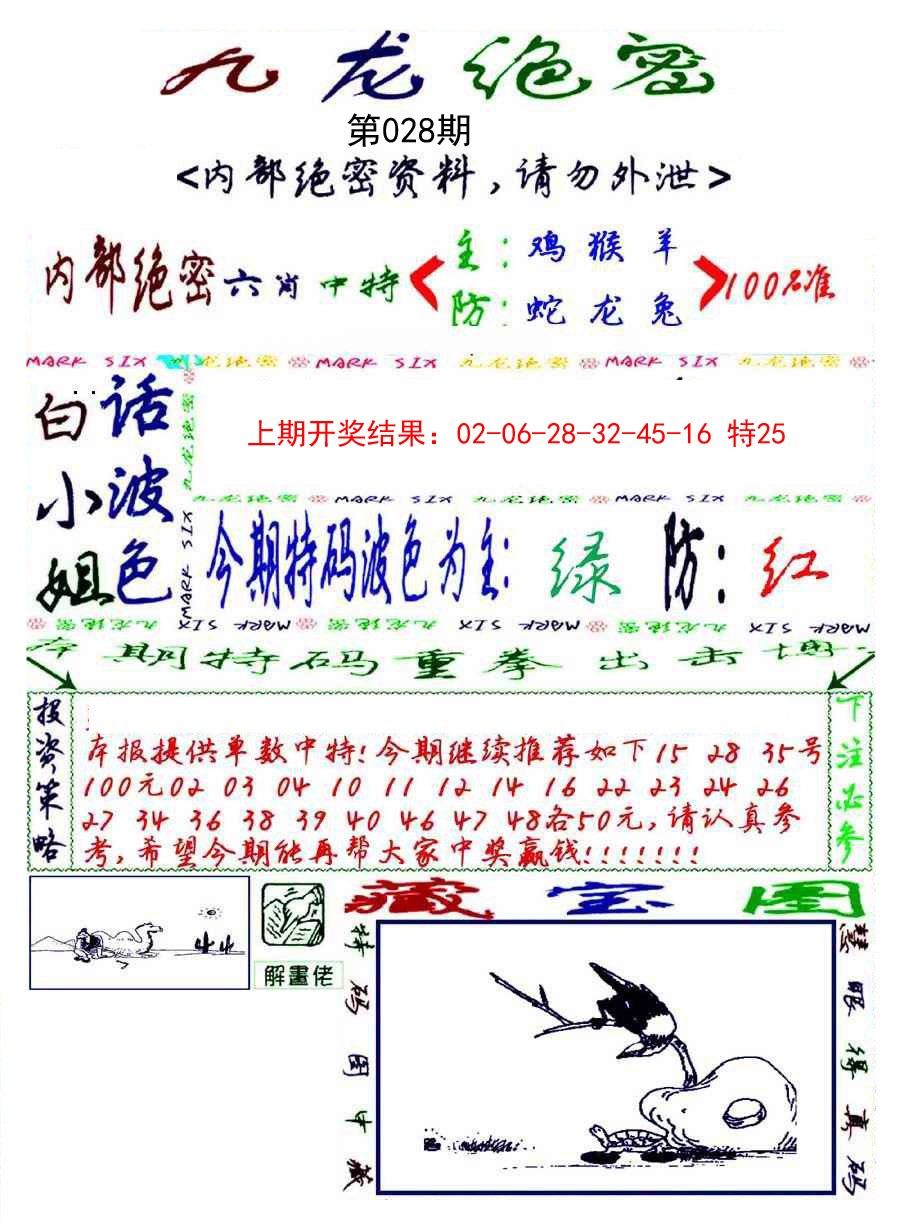 九龙绝密
第028期
<内部绝密资料,请勿外泄>
内部绝密六肖中特
主:鸡猴羊
防:蛇龙兔
100%准
MARK SIX 九龙绝密 MARK SIX 九龙绝密 MARK SIX 九龙绝密
白小姐
话波色
九龙绝密 MARK SIX
上期开奖结果：02-06-28-32-45-16 特25
九龙绝密 MARK SIX 九龙绝密 MARK SIX 九龙绝密
今期特码波色为主:绿 防:红
九龙绝密 MARK SIX 九龙绝密 MARK SIX 九龙绝密 MARK SIX
本期特码重拳出击
投资策略
本报提供单数中特!今期继续推荐如下15 28 35号
100元02 03 04 10 11 12 14 16 22 23 24 26
27 34 36 38 39 40 46 47 48各50元,请认真参
考,希望今期能再帮大家中奖赢钱!!!!!!!
下注必参
解畫佬
藏宝图
特码图中藏
慧眼得真码